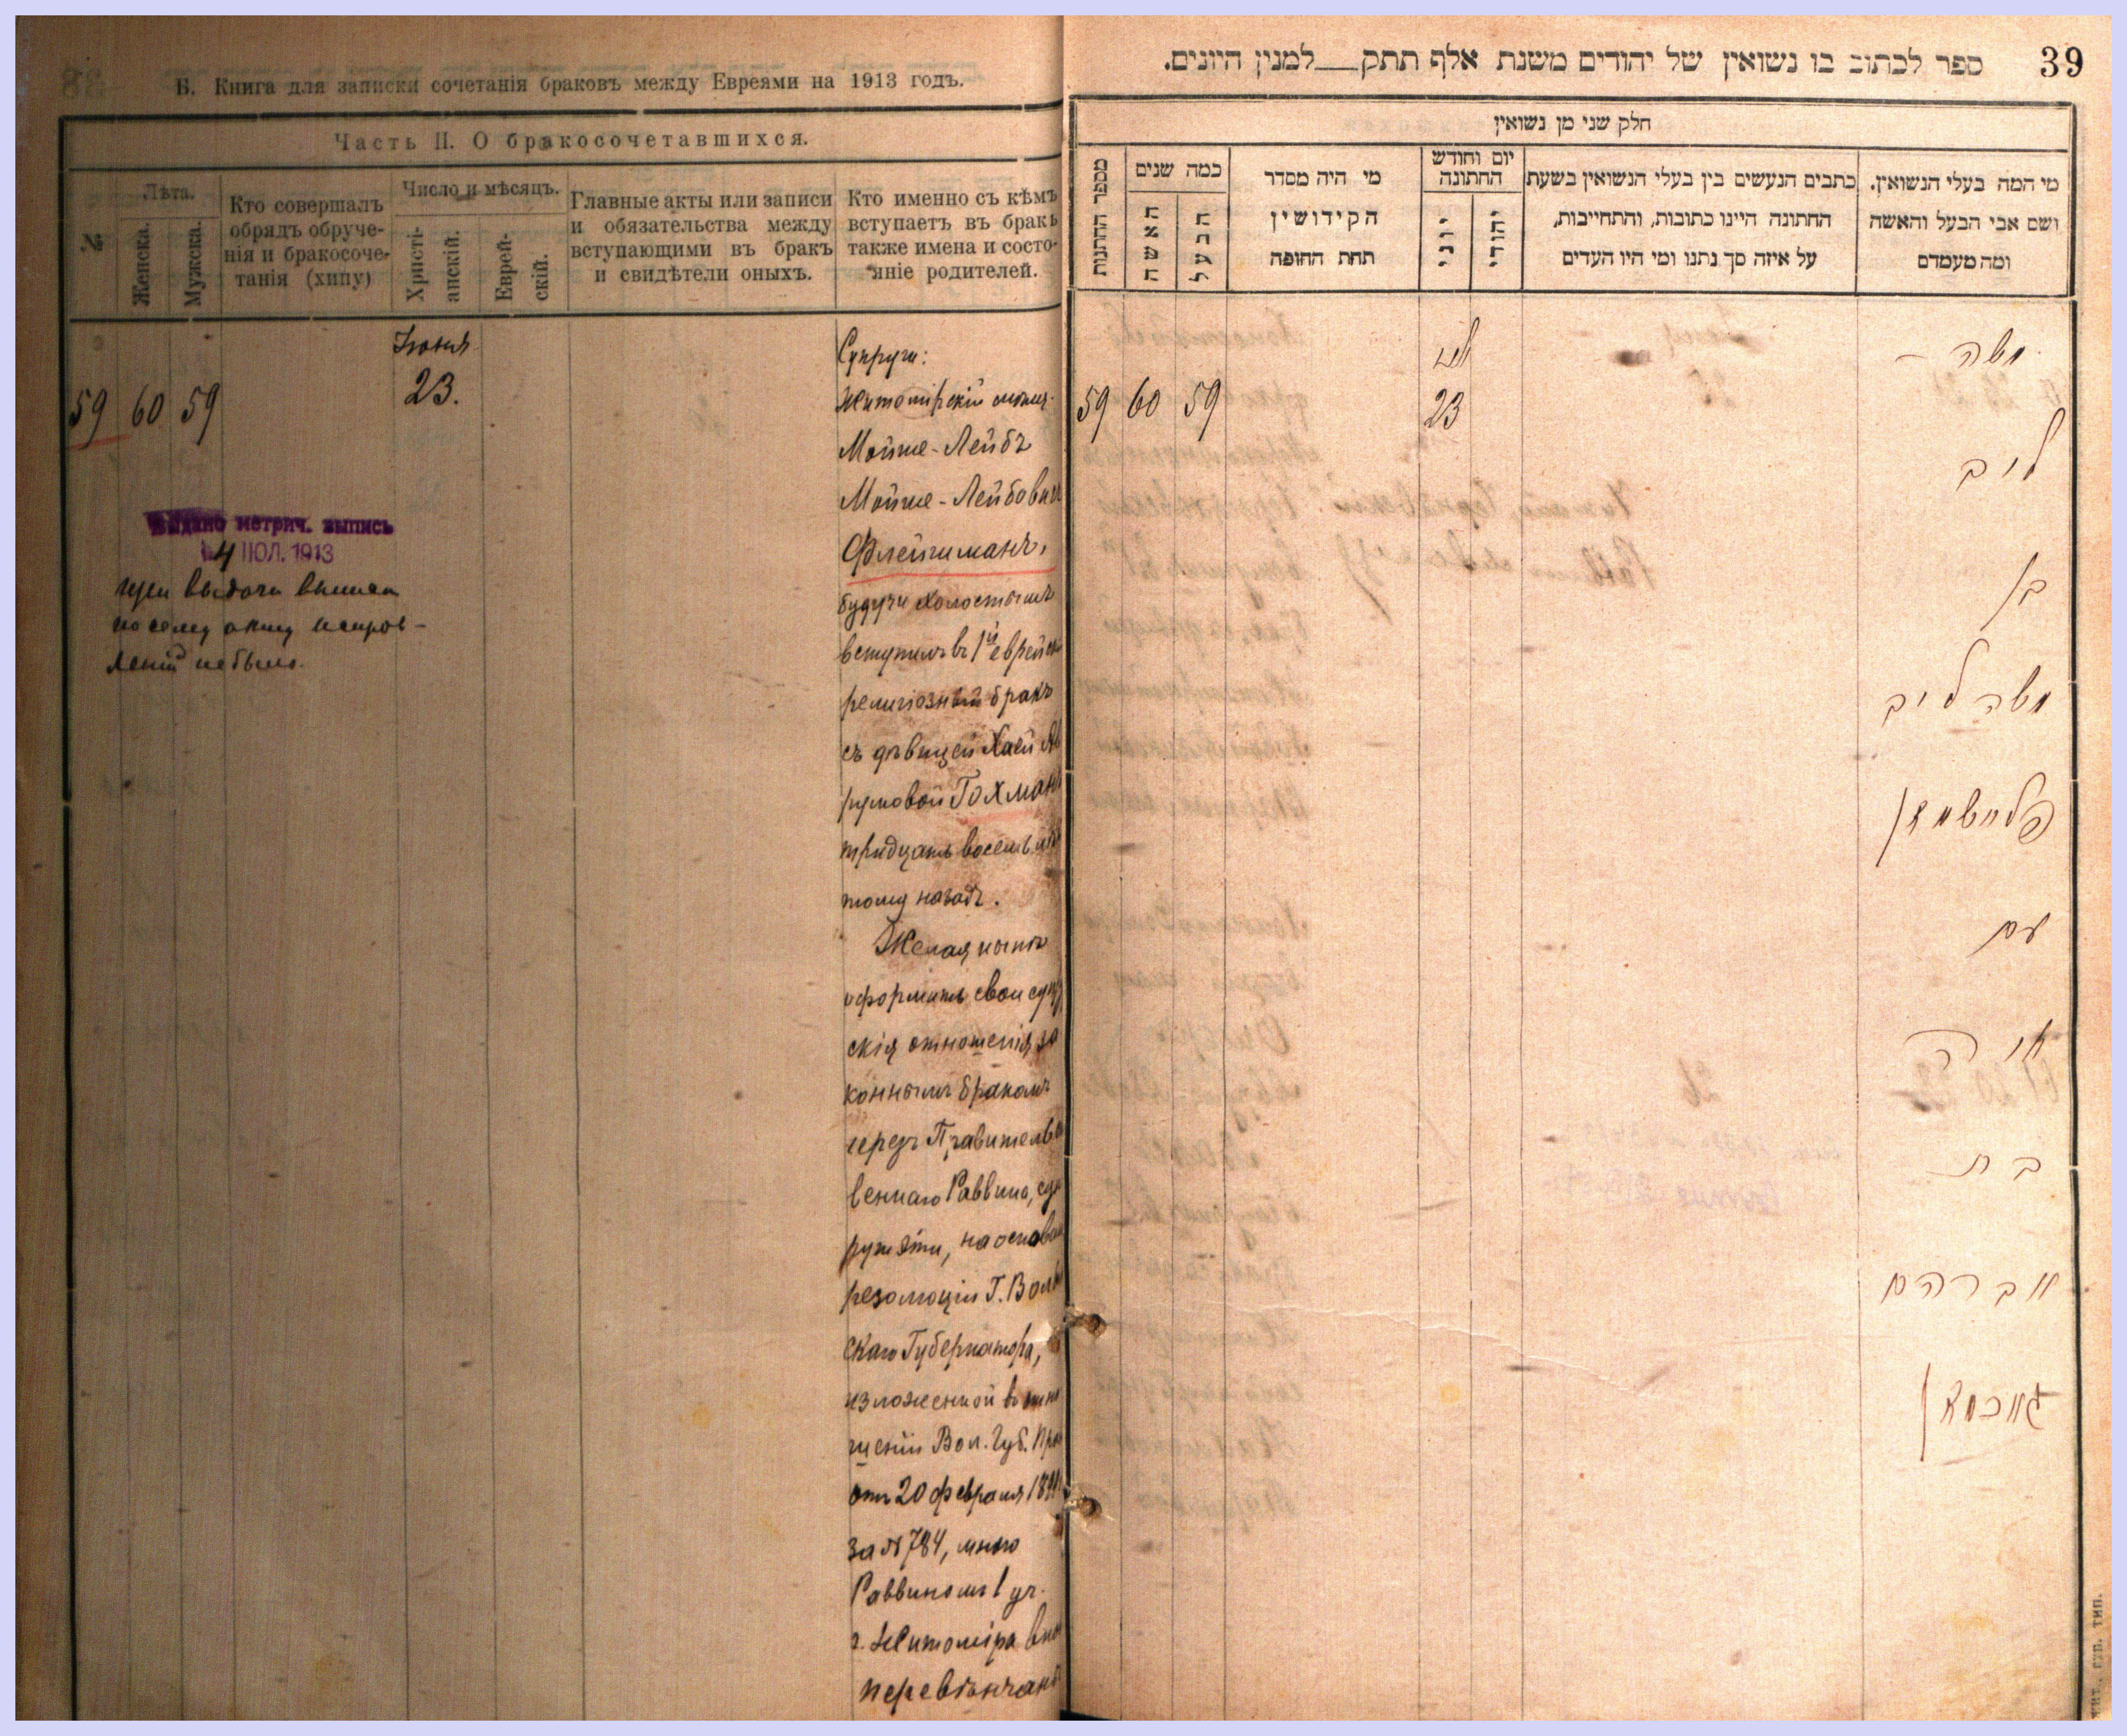 Б. Книга для записки сочетанія браковъ между Евреями на 1913 годъ.
Часть II. О бракосочетавшихся.
№
Лѣта.
Женска.
Мужска.
Кто совершалъ
обрядъ обруче-
нія и бракосоче-
танія (хипу)
Число и мѣсяцъ.
Христі-
анскій.
Еврей-
скій.
Главные акты или записи
и обязательства между
вступающими въ бракъ
и свидѣтели оныхъ.
Кто именно съ кѣмъ
вступаетъ въ бракъ
также имена и состо-
яніе родителей.
59 60 59
Іюня
23.
Выдано метрич. выпись
4 ІЮЛ. 1913
при выдачи выписи
по сему акту исправ-
леній не было.
Супруги:
Житомірскій мѣщ.
Мойше-Лейбъ
Мойше-Лейбович
Флейшманъ,
будучи холостымъ
вступилъ въ 1й еврейск
религіозный бракъ
съ дѣвицей Хаей Ав
румовой Гохман
тридцать восемь лѣт
тому назадъ.
Желая нынѣ
оформить свои супру
скія отношенія за
коннымъ бракомъ
черезъ Правительст
веннаго Раввина, суп
руги эти, на основан
резолюціи Г. Волын
скаго Губернатора,
изложенной въ отно
шеніи Вол. Губ. Прав
отъ 20 февраля
за № 784, мною
Раввиномъ 1 уч.
г. Житоміра
перевѣнчаны
39
ספר לכתוב בו נשואין של יהודים משנת אלף תתק___למנין היונים.
חלק שני מן נשואין
מספר החתונות
כמה שנים
האשה
הבעל
מי היה מסדר
הקידושין
תחת החופה
יום וחודש
החתונה
יוני
יהודי
כתבים הנעשים בין בעלי הנשואין בשעת
החתונה היינו כתובות, והתחייבות,
על איזה סך נתנו ומי היו העדים
מי המה בעלי הנשואין,
ושם אבי הבעל והאשה
ומה מעמדם
59 60 59
23
משה -
ליב
בן
משה ליב
פליישמאן
עם
חיה
בת
אברהם
גאכמאן